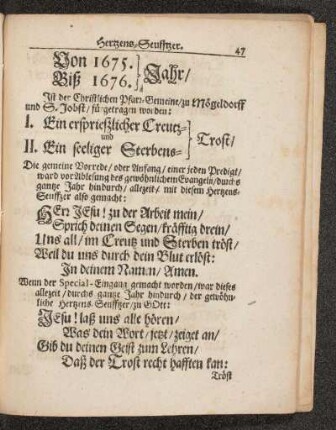 Hertzens-Seufftzer. 47
Von 1675. } Jahr/
Biß 1676.
Ist der Christlichen Pfarr-Gemeine/ zu Mögeldorff
und S. Jobst/ fürgetragen worden:
I. Ein ersprießlicher Creutz-
und } Trost/
II. Ein seeliger Sterbens-
Die gemeine Vorrede/ oder Anfang/ einer jeden Predigt/
ward vor Ablesung des gewöhnlichem Evangelii/ durchs
gantze Jahr hindurch/ allezeit/ mit diesem Hertzens-
Seufftzer also gemacht:
HErr JEsu! zu der Arbeit mein/
Sprich deinen Segen/ kräfftig drein/
Uns all/ im Creutz und Sterben tröst/
Weil du uns durch dein Blut erlöst:
In deinem Namen/ Amen.
Wenn der Special-Eingang gemacht worden/ war dieses
allezeit/ durchs gantze Jahr hindurch/ der gewöhn-
liche Hertzens-Seufftzer/ zu GOtt:
JEsu! laß uns alle hören/
Was dein Wort/ jetzt/ zeiget an/
Gib du deinen Geist zum Lehren/
Daß der Trost recht hafften kan:
Tröst